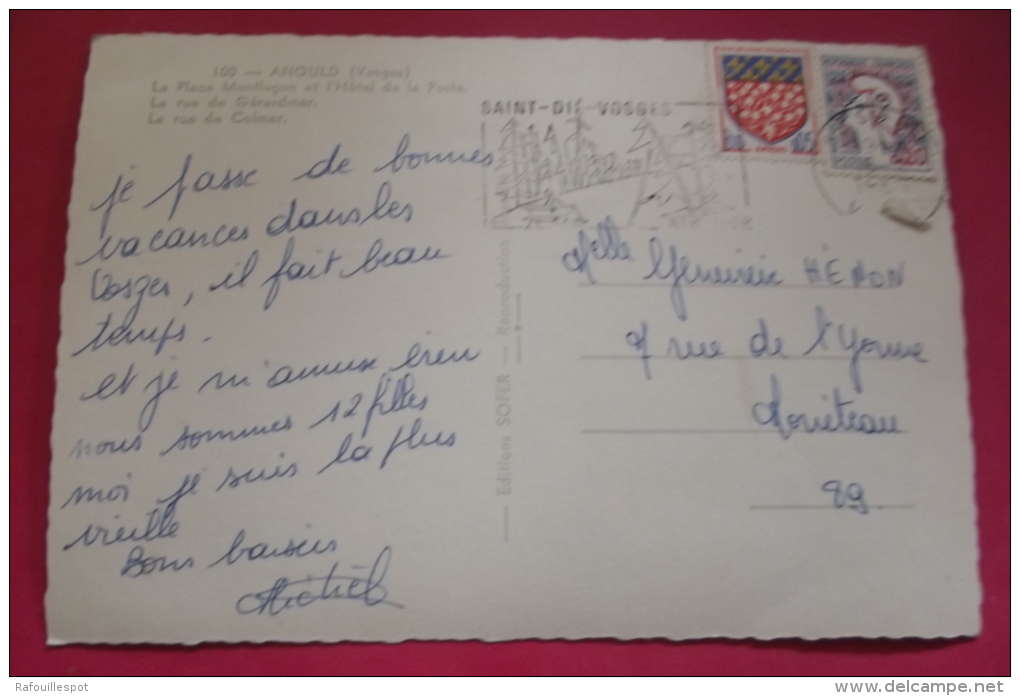 100 — ANOULD (Vosges)
La Place Monfluçon et l'Hôtel de la Poste.
La rue de Gérardmer.
La rue de Colmar.
SAINT-DIÉ-VOSGES
je passe de bonnes
vacances dans les
Vosges, il fait beau
temps.
et je m'amuse bien
nous sommes 12 filles
moi je suis la plus
vieille
Bons baisers
Editions SOFER — Reproduction
Melle Geneviève HÉMON
7 rue de l'Yonne
Monéteau
89
Rafouillespot
delcampe.net